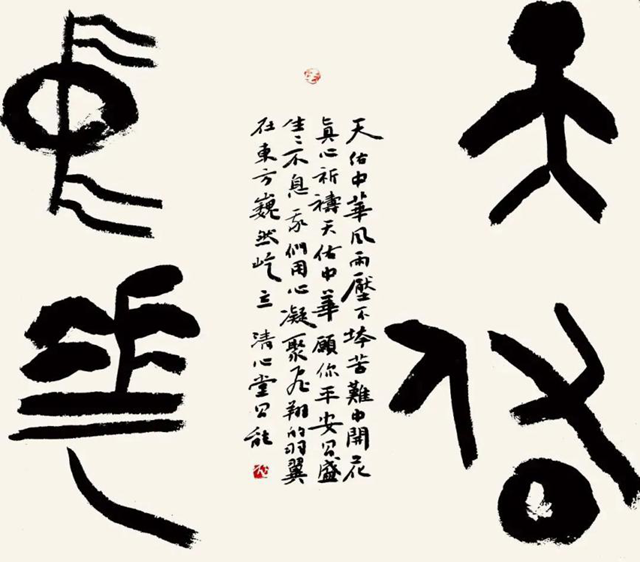 天佑
中華
天佑中華风雨壓不垮苦難中開花
真心祈禱天佑中華願你平安昌盛
生々不息我們用心凝聚飛翔的羽翼
在東方巍然屹立 清心堂昌能